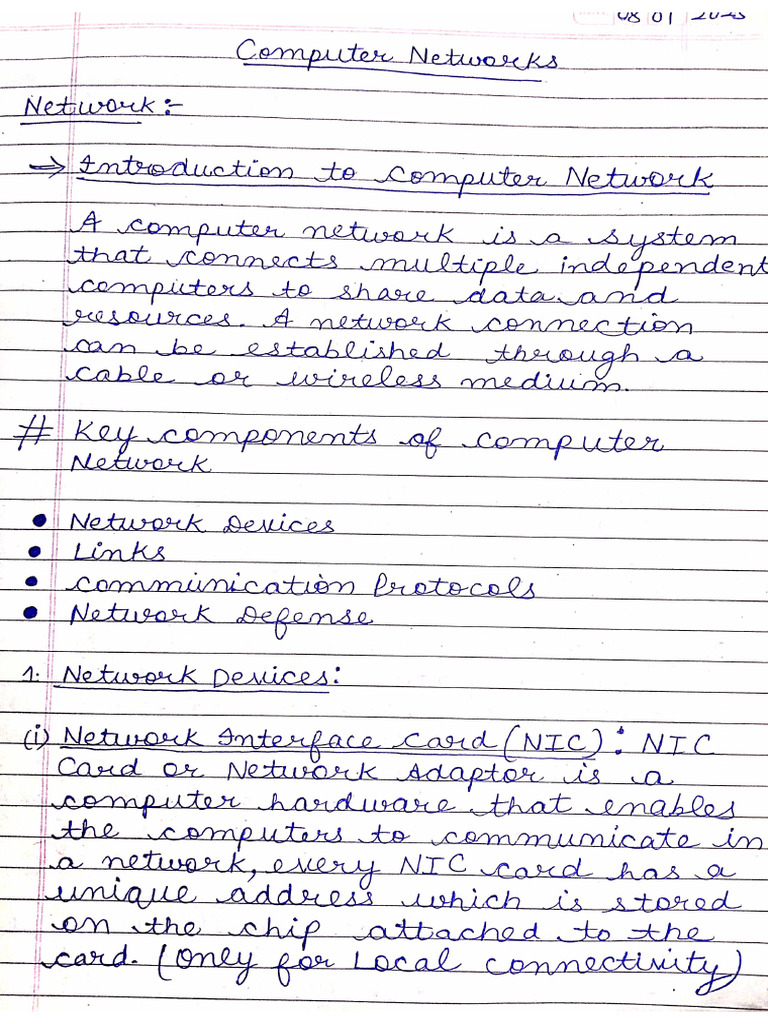 08 01 2025
Computer Networks
Network:-
→ Introduction to Computer Network
A computer network is a system
that connects multiple independent
computers to share data and
resources. A network connection
can be established through a
cable or wireless medium.
# Key components of computer
Network
• Network Devices
• Links
• Communication Protocols
• Network Defense
1. Network Devices:
(i) Network Interface Card (NIC): NIC
Card or Network Adaptor is a
computer hardware that enables
the computers to communicate in
a network, every NIC card has a
unique address which is stored
on the chip attached to the
card. (Only for Local connectivity)